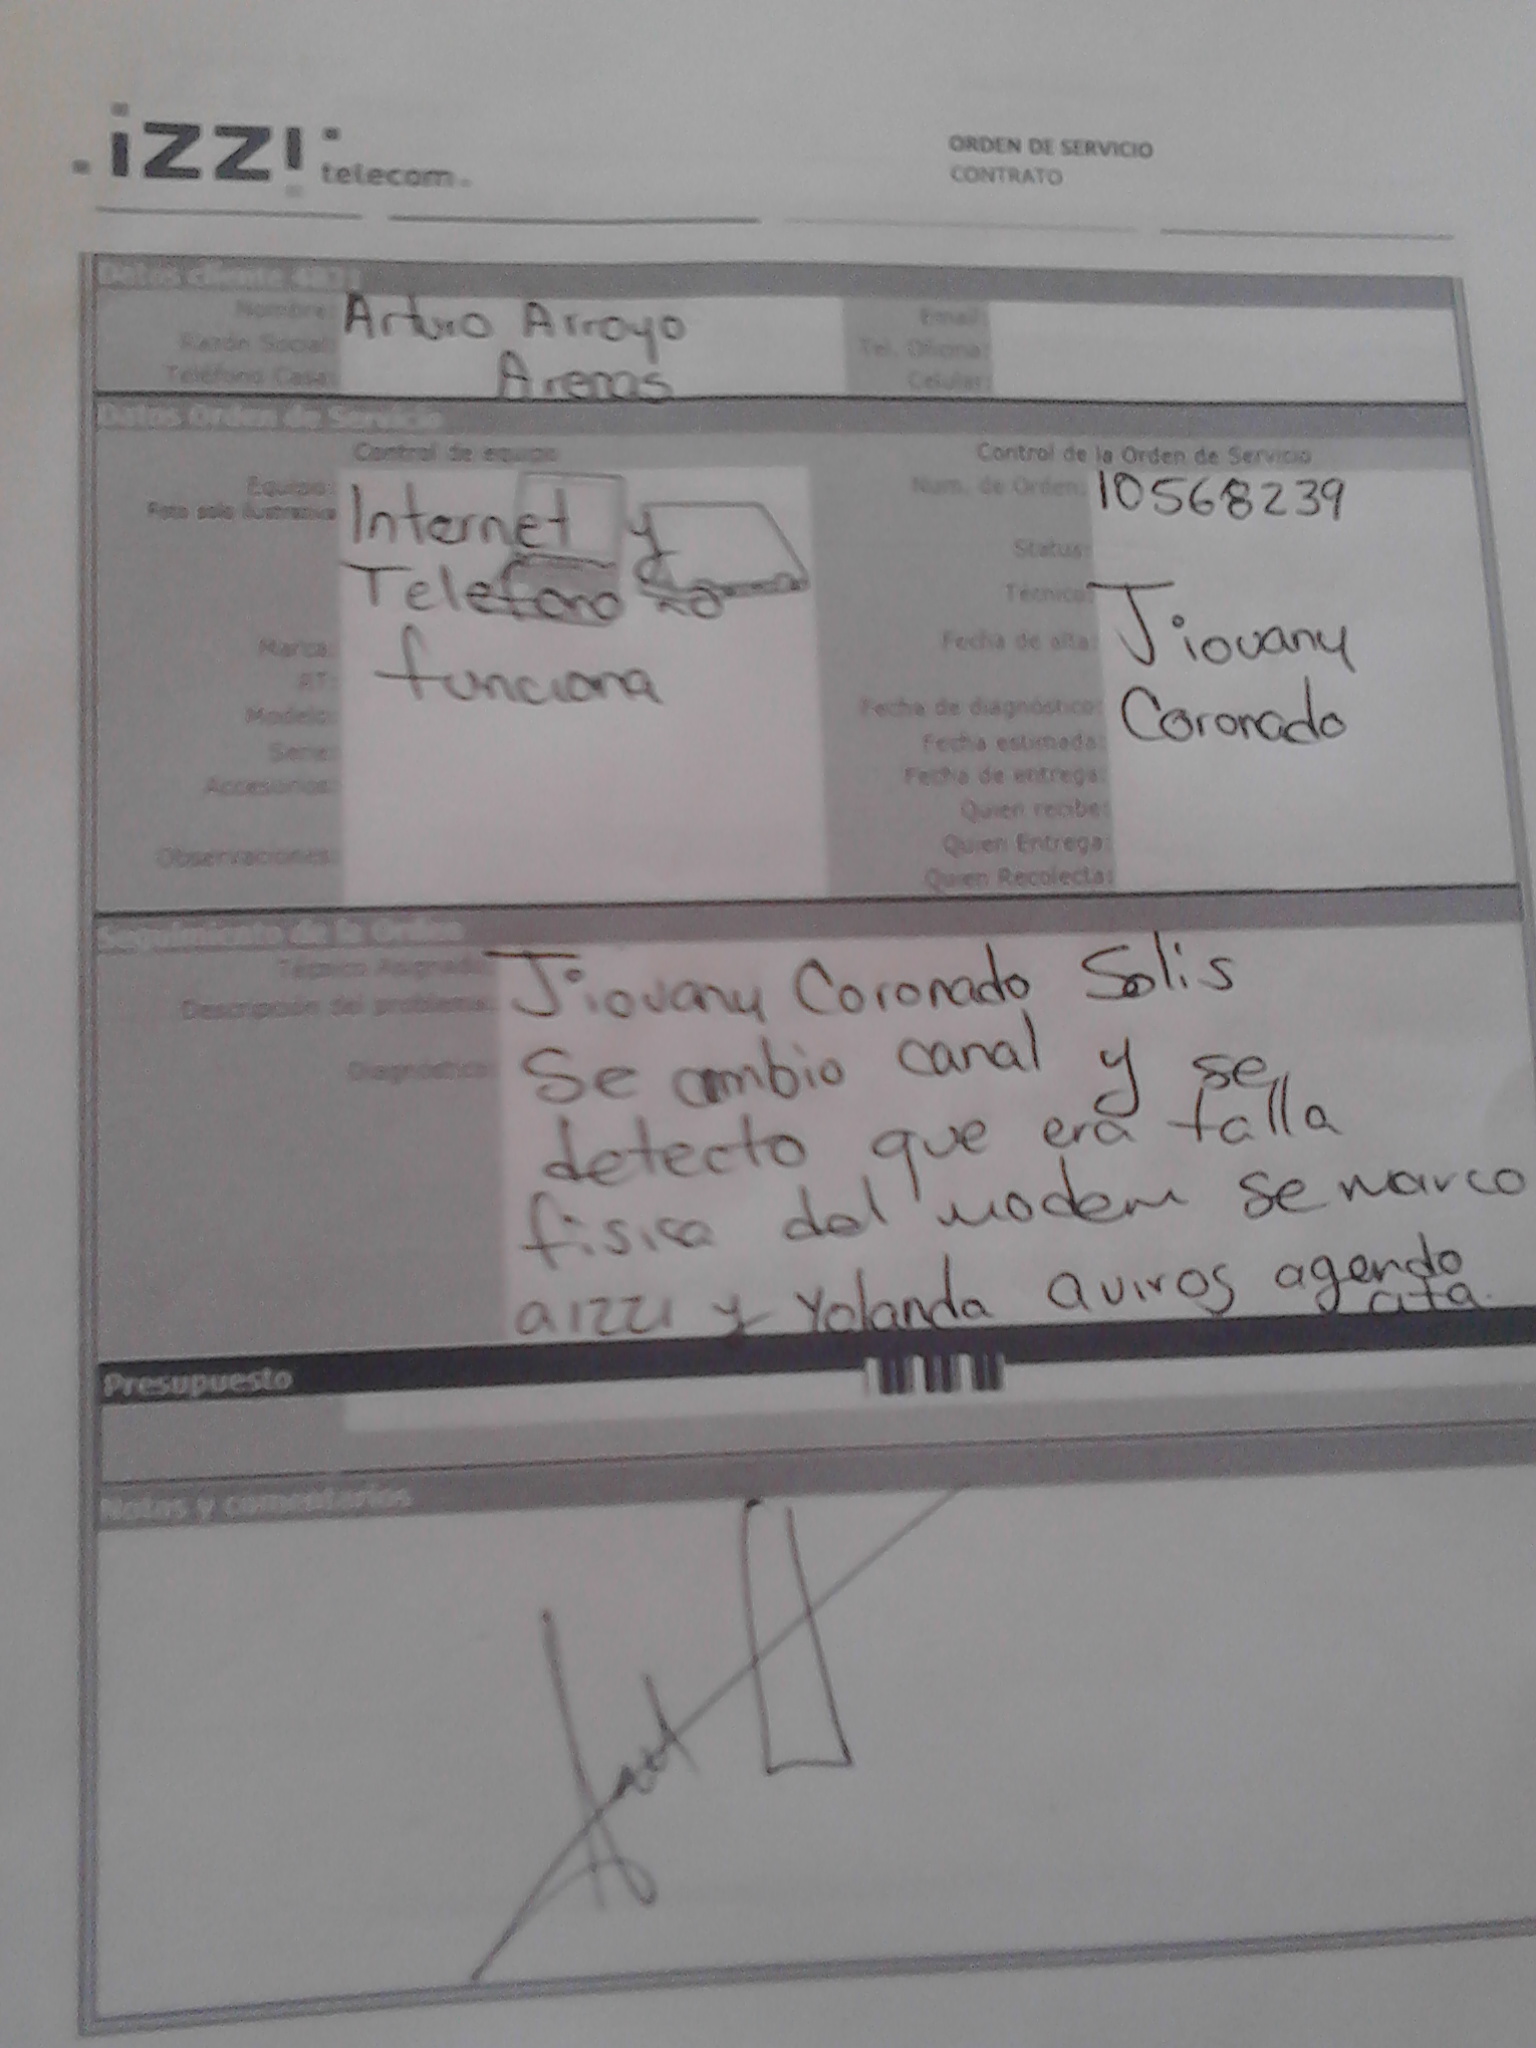 izzi telecom
ORDEN DE SERVICIO
CONTRATO
Datos cliente
Nombre: Arturo Arroyo
Razón Social:
Teléfono Casa: Arenas
Email:
Tel. Oficina:
Celular:
Datos Orden de Servicio
Control de equipo
Equipo: Internet y
Foto solo ilustrativa
Telefono no
funciona
Marca:
RT:
Modelo:
Serie:
Accesorios:
Observaciones:
Control de la Orden de Servicio
Num. de Orden: 10568239
Status:
Técnico: Jiovany
Fecha de alta:
Coronado
Fecha de diagnóstico:
Fecha estimada:
Fecha de entrega:
Quien recibe:
Quien Entrega:
Quien Recolecta:
Seguimiento de la Orden
Técnico Asignado: Jiovany Coronado Solis
Descripción del problema:
Diagnóstico: Se cambio canal y se
detecto que era falla
fisica del modem se marco
a izzi y Yolanda Quiros agendo
cita.
Presupuesto
Notas y comentarios